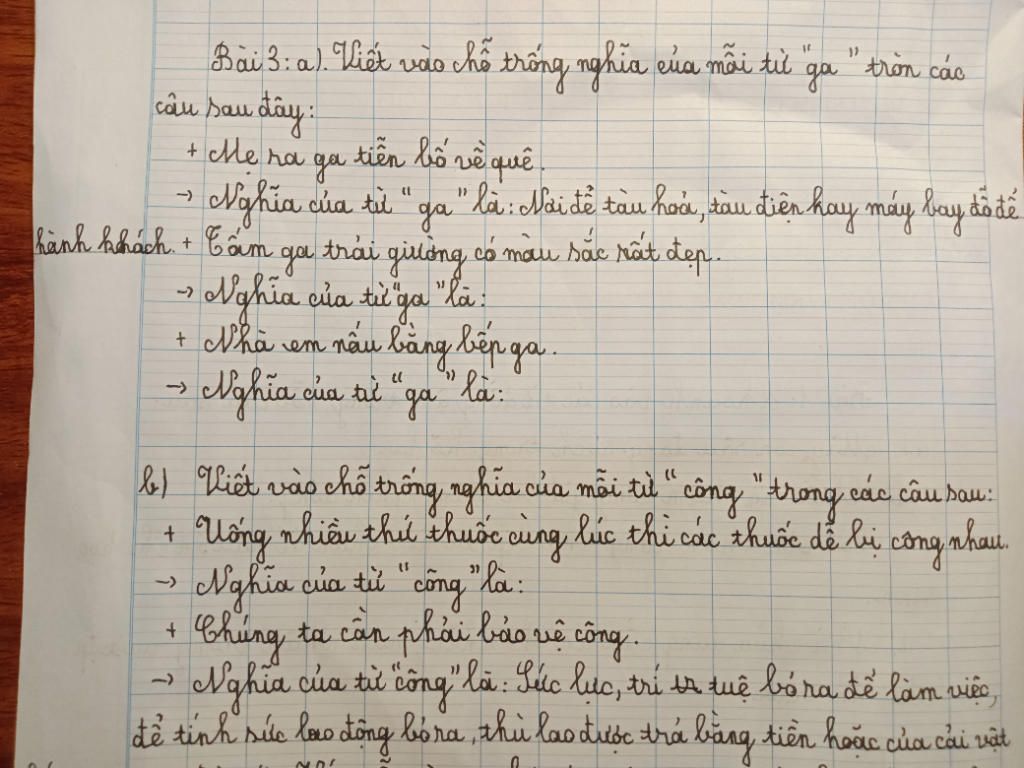 Bài 3: a). Viết vào chỗ trống nghĩa của mỗi từ "ga" tròn các
câu sau đây:
+ Mẹ ra ga tiễn bố về quê.
→ Nghĩa của từ "ga" là: Nơi để tàu hoả, tàu điện hay máy bay đỗ để
hành khách. + Tấm ga trải giường có màu sắc rất đẹp.
→ Nghĩa của từ "ga" là:
+ Nhà em nấu bằng bếp ga.
→ Nghĩa của từ "ga" là:
b) Viết vào chỗ trống nghĩa của mỗi từ "công" trong các câu sau:
+ Uống nhiều thứ thuốc cùng lúc thì các thuốc dễ bị công nhau.
→ Nghĩa của từ "công" là:
+ Chúng ta cần phải bảo vệ công.
→ Nghĩa của từ "công" là: Sức lực, trí tuệ bỏ ra để làm việc,
để tính sức lao động bỏ ra, thù lao được trả bằng tiền hoặc của cải vật